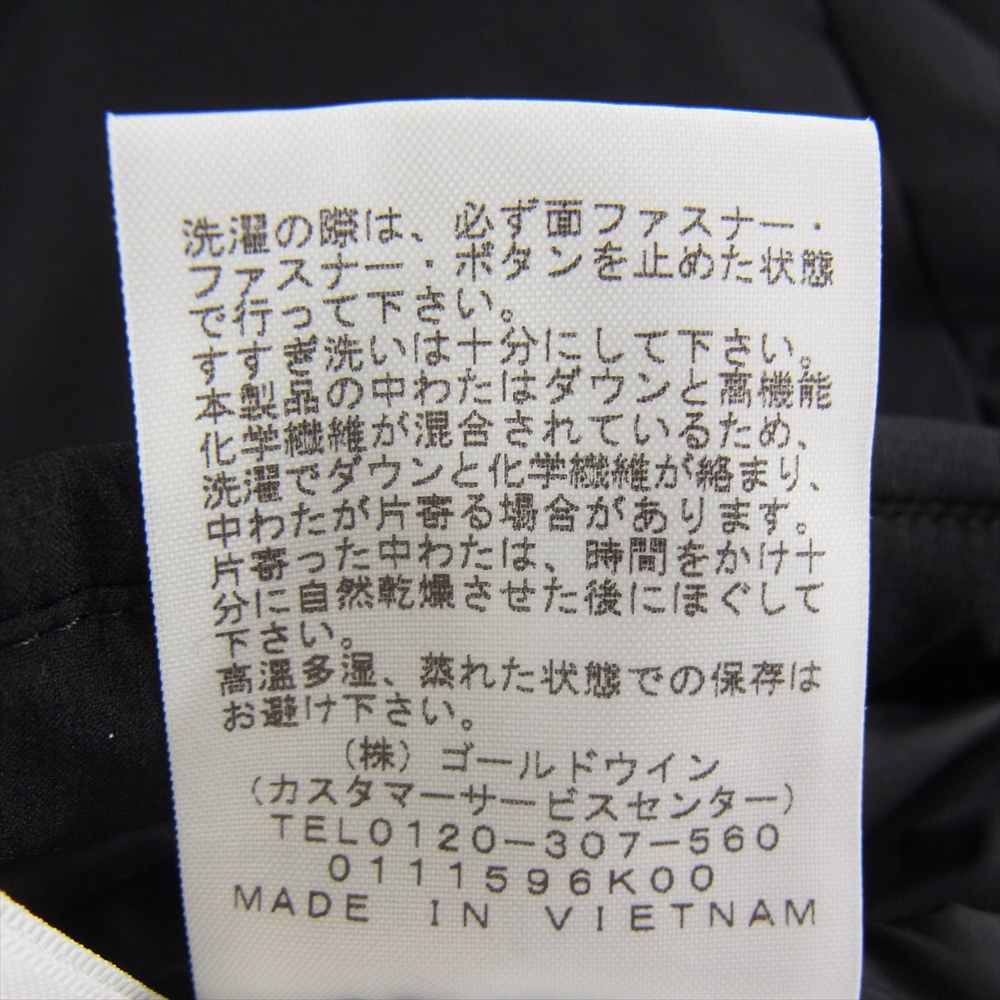 洗濯の際は、必ず面ファスナー・
ファスナー・ボタンを止めた状態
で行って下さい。
すすぎ洗いは十分にして下さい。
本製品の中わたはダウンと高機能
化学繊維が混合されているため、
洗濯でダウンと化学繊維が絡まり、
中わたが片寄る場合があります。
片寄った中わたは、時間をかけ十
分に自然乾燥させた後にほぐして
下さい。
高温多湿、蒸れた状態での保存は
お避け下さい。
(株)ゴールドウイン
(カスタマーサービスセンター)
TEL0120-307-560
0111596K00
MADE IN VIETNAM